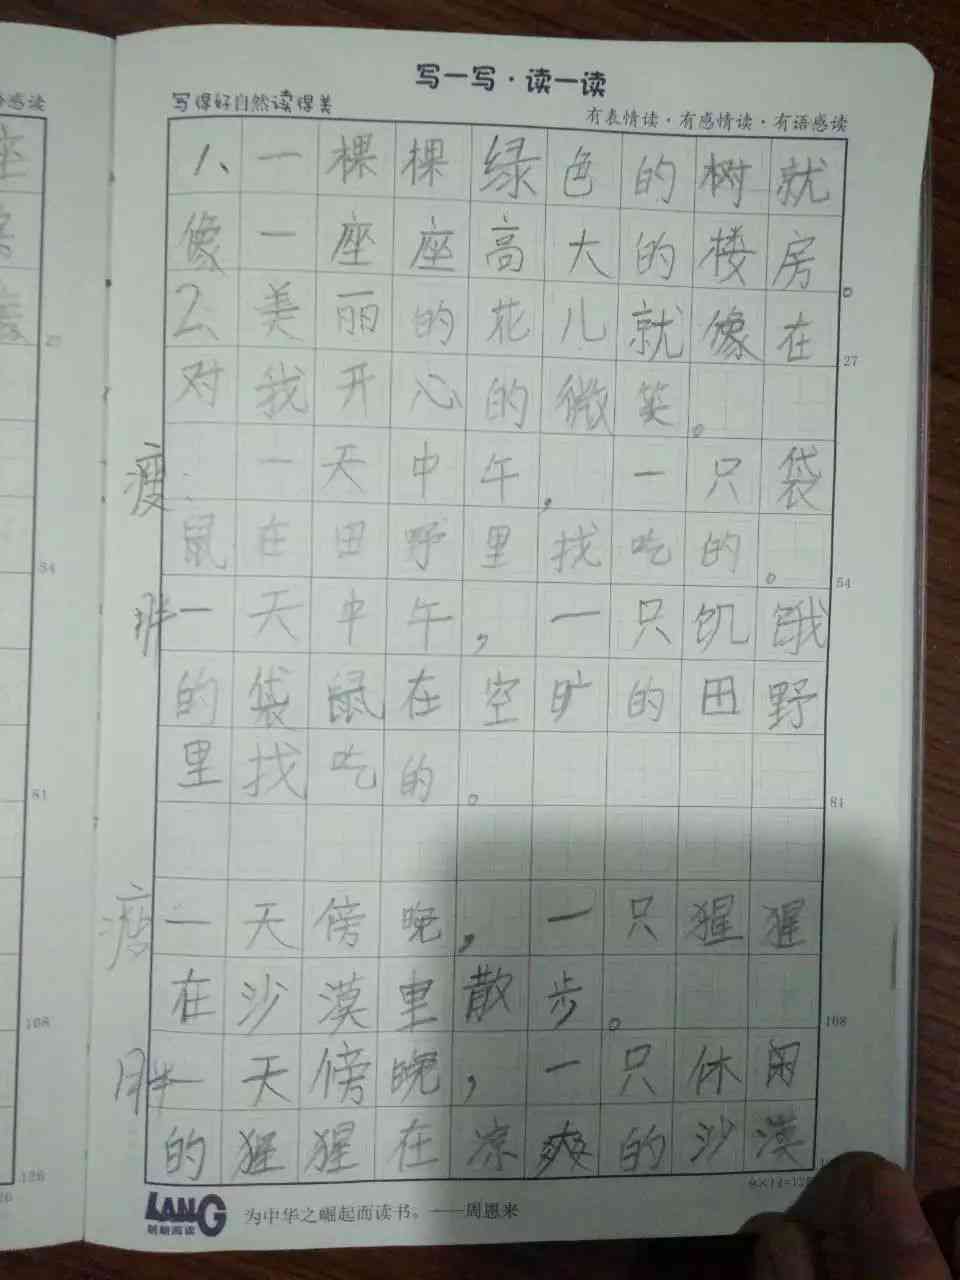 写一写·读一读
写得好自然读得美
有表情读·有感情读·有语感读
感读
座
27
54
81
108
126
1、一棵棵绿色的树就
像一座座高大的楼房。
2、美丽的花儿就像在
27
对我开心的微笑。
瘦 一天中午,一只袋
鼠在田野里找吃的。
54
胖 一天中午,一只饥饿
的袋鼠在空旷的田野
里找吃的。
81
瘦 一天傍晚,一只猩猩
在沙漠里散步。
108
胖 一天傍晚,一只休闲
的猩猩在凉爽的沙漠
9×14=126
LANG
朗朗阅读
为中华之崛起而读书。——周恩来